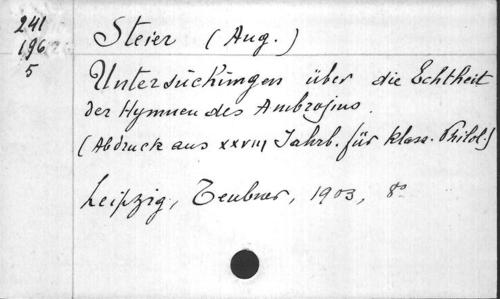 241
196
5
Steier (Aug.)
Untersuckungen über die Echtheit
der Hymnen des Ambrosius.
(Abdruck aus XXVIII Jahrb. für klass. Philol.)
Leipzig, Teubner, 1903, 8°